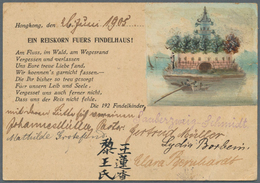 Hongkong, den 26. Juni 1905
EIN REISKORN FUERS FINDELHAUS!
Am Fluss, im Wald, am Wegesrand
Vergessen und verlassen
Uns Eure treue Liebe fand,
Wir koennen's garnicht fassen.—
Die Ihr bisher so treu gesorgt
Fuer unsere Leib und Seele,
Vergesst uns auch weiter nicht,
Dass uns der Reis nicht fehle.
Die 192 Findelkinder
Gertrud Müller
Lydia Borbein
Clara Burghardt
王蓮香
王氏